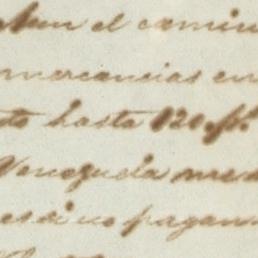 en el camin
mercancias en
to hasta 120. ps.
Venezuela me
pagan